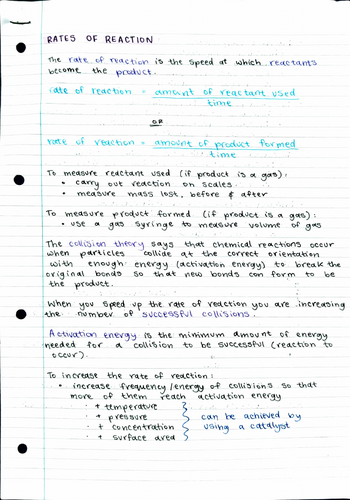 RATES OF REACTION
The rate of reaction is the speed at which reactants
become the product.
rate of reaction = amount of reactant used
time
OR
rate of reaction = amount of product formed
time
To measure reactant used (if product is a gas):
• carry out reaction on scales
• measure mass lost, before & after
To measure product formed (if product is a gas):
• use a gas syringe to measure volume of gas
The collision theory says that chemical reactions occur
when particles collide at the correct orientation
with enough energy (activation energy) to break the
original bonds so that new bonds can form to be
the product.
When you speed up the rate of reaction you are increasing
the number of successful collisions.
Activation energy is the minimum amount of energy
needed for a collision to be successful (reaction to
occur).
To increase the rate of reaction:
• increase frequency/energy of collisions so that
more of them reach activation energy
· + temperature
· + pressure can be achieved by
· + concentration using a catalyst
· + surface area